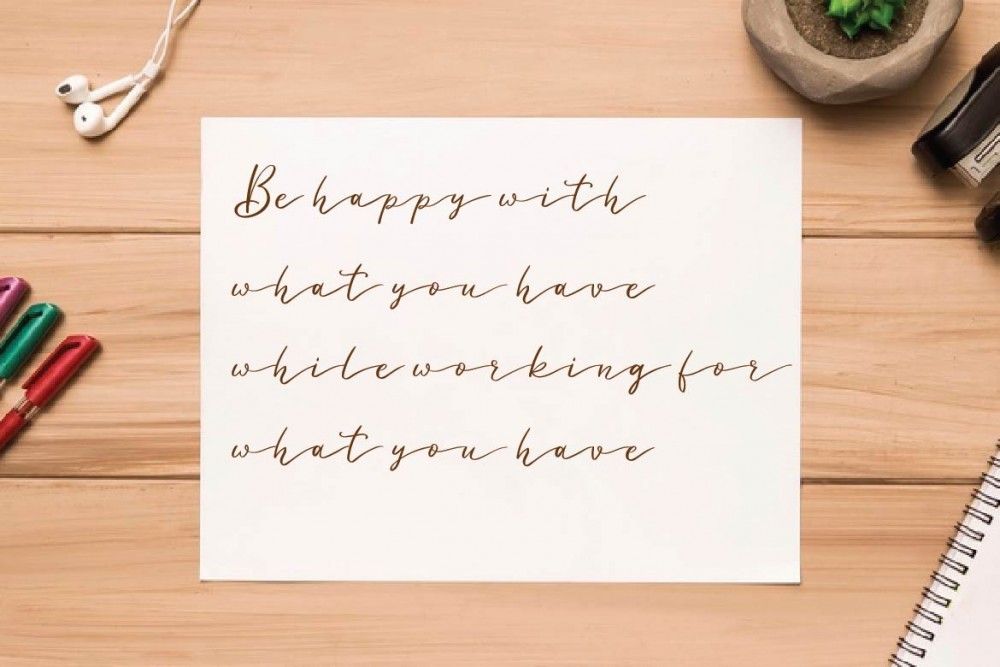 Be happy with
what you have
while working for
what you have